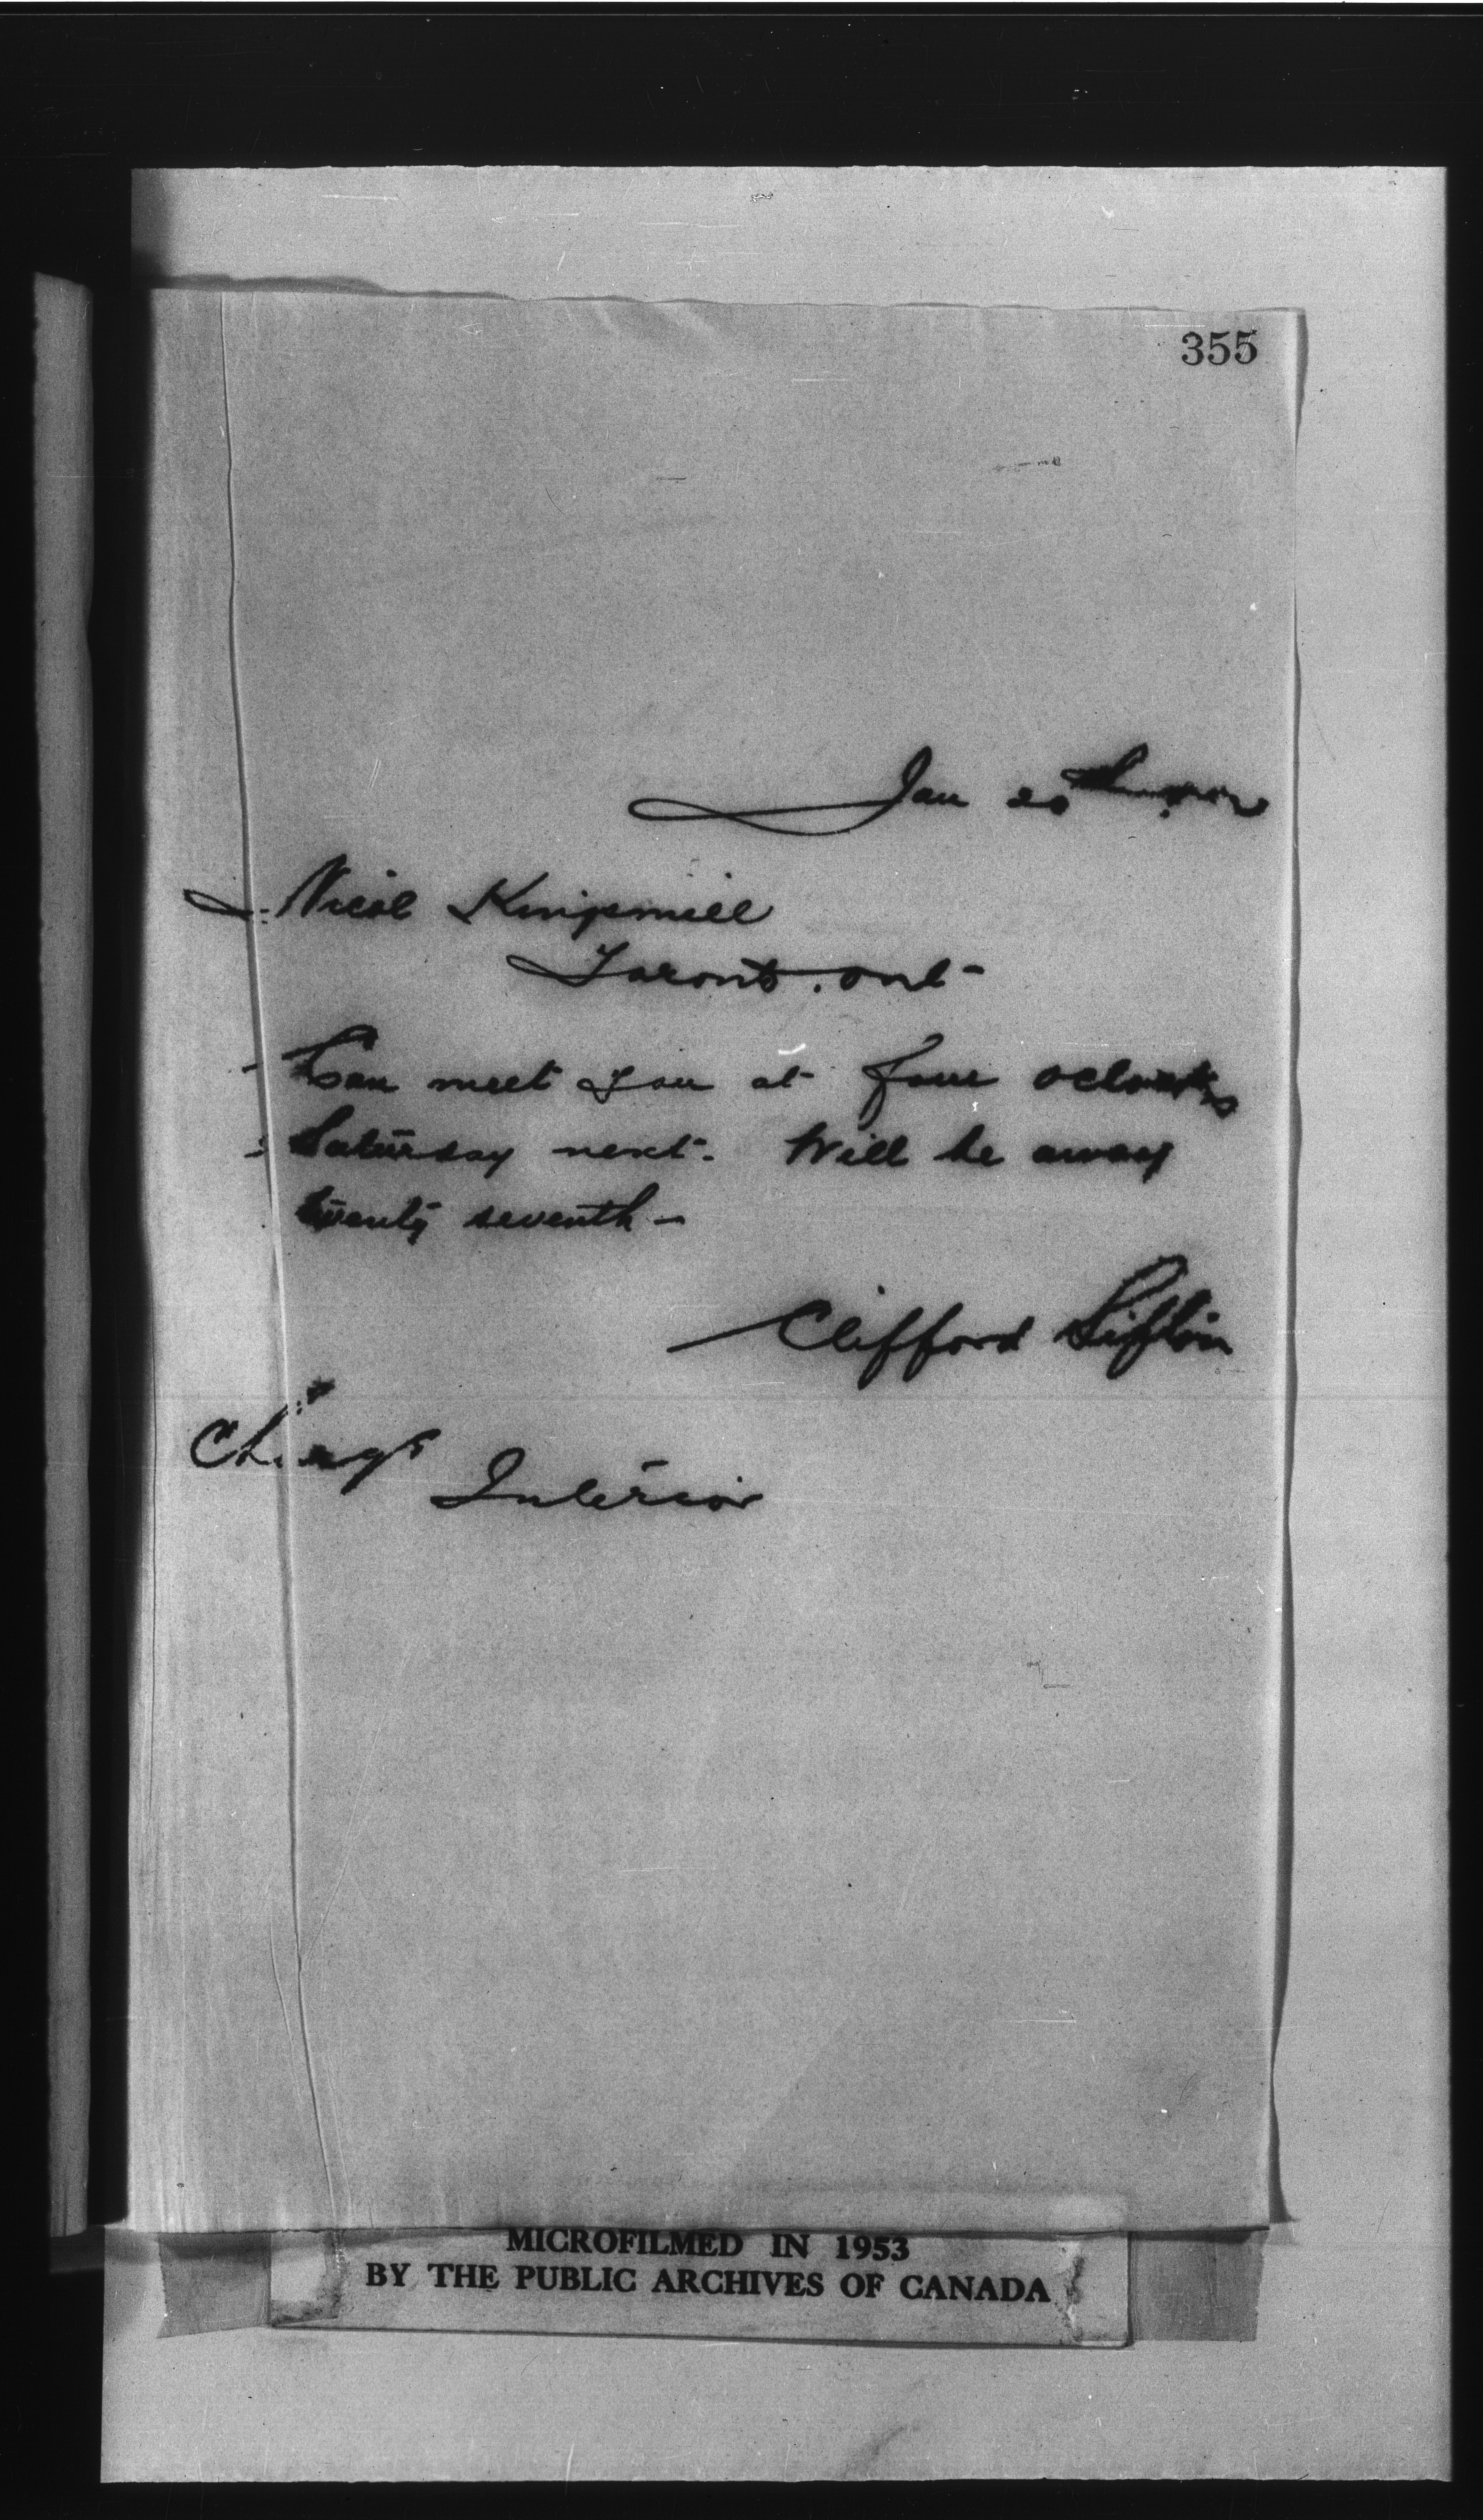 355
Jan 20
Nicol Kingsmill
Toronto. Ont-
Can meet you at four oclock
Saturday next. Will be away
twenty seventh -
Clifford Sifton
Charge Interior
MICROFILMED IN 1953
BY THE PUBLIC ARCHIVES OF CANADA